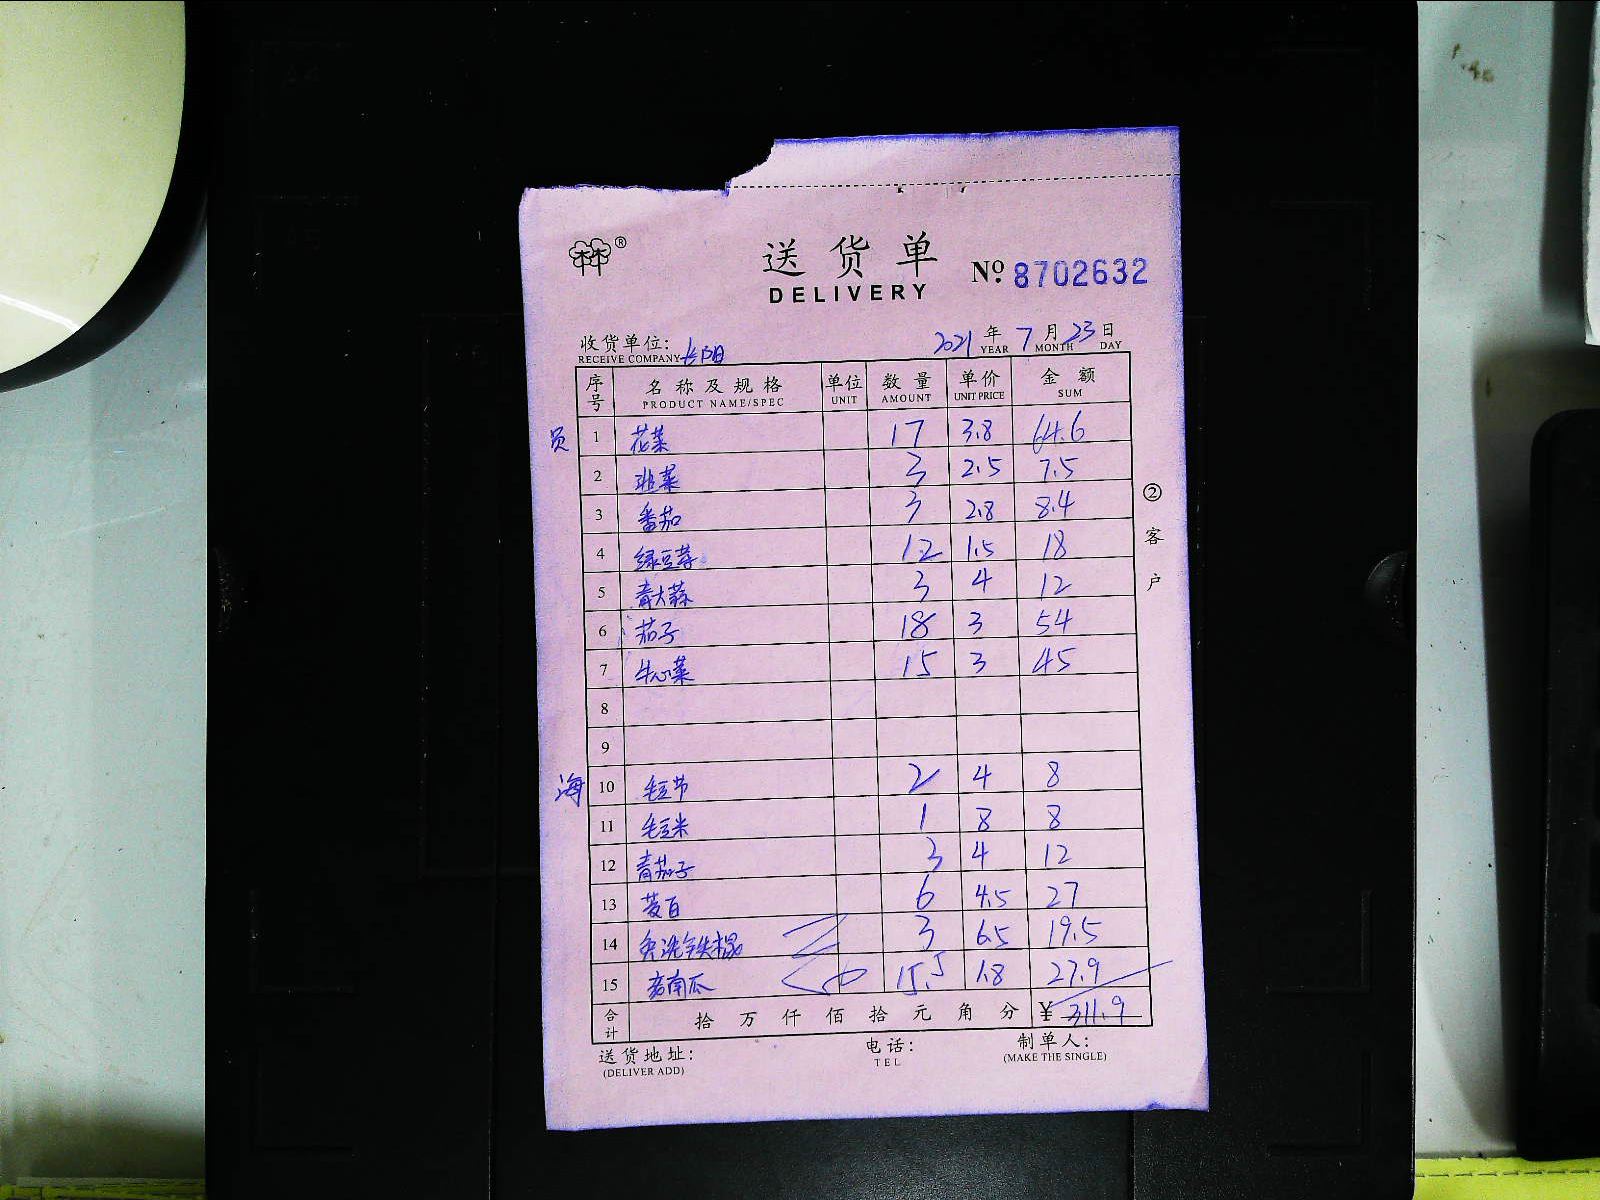 林® 送货单 No. 8702632
DELIVERY
收货单位: 长阳 2021 年 7 月 23 日
RECEIVE COMPANY YEAR MONTH DAY
序号 名称及规格 单位 数量 单价 金额
PRODUCT NAME/SPEC UNIT AMOUNT UNIT PRICE SUM
员 1 花菜 17 3.8 64.6
2 韭菜 3 2.5 7.5
3 番茄 3 2.8 8.4
4 绿豆芽 12 1.5 18
5 青大蒜 3 4 12
6 茄子 18 3 54
7 牛心菜 15 3 45
8
9
海 10 毛豆节 2 4 8
11 毛豆米 1 8 8
12 青茄子 3 4 12
13 茭白 6 4.5 27
14 免洗铁棍 3 6.5 19.5
15 老南瓜 15.5 1.8 27.9
合计 拾 万 仟 佰 拾 元 角 分 ¥ 311.9
送货地址: 电话: 制单人:
(DELIVER ADD) TEL (MAKE THE SINGLE)
②客户